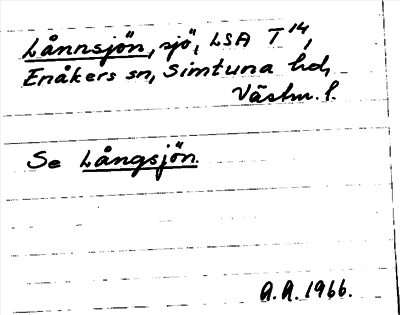 Lånnsjön, sjö, LSA T 14,
Enåkers sn, Simtuna hd,
Västm. l.
Se Långsjön.
A.A. 1966.